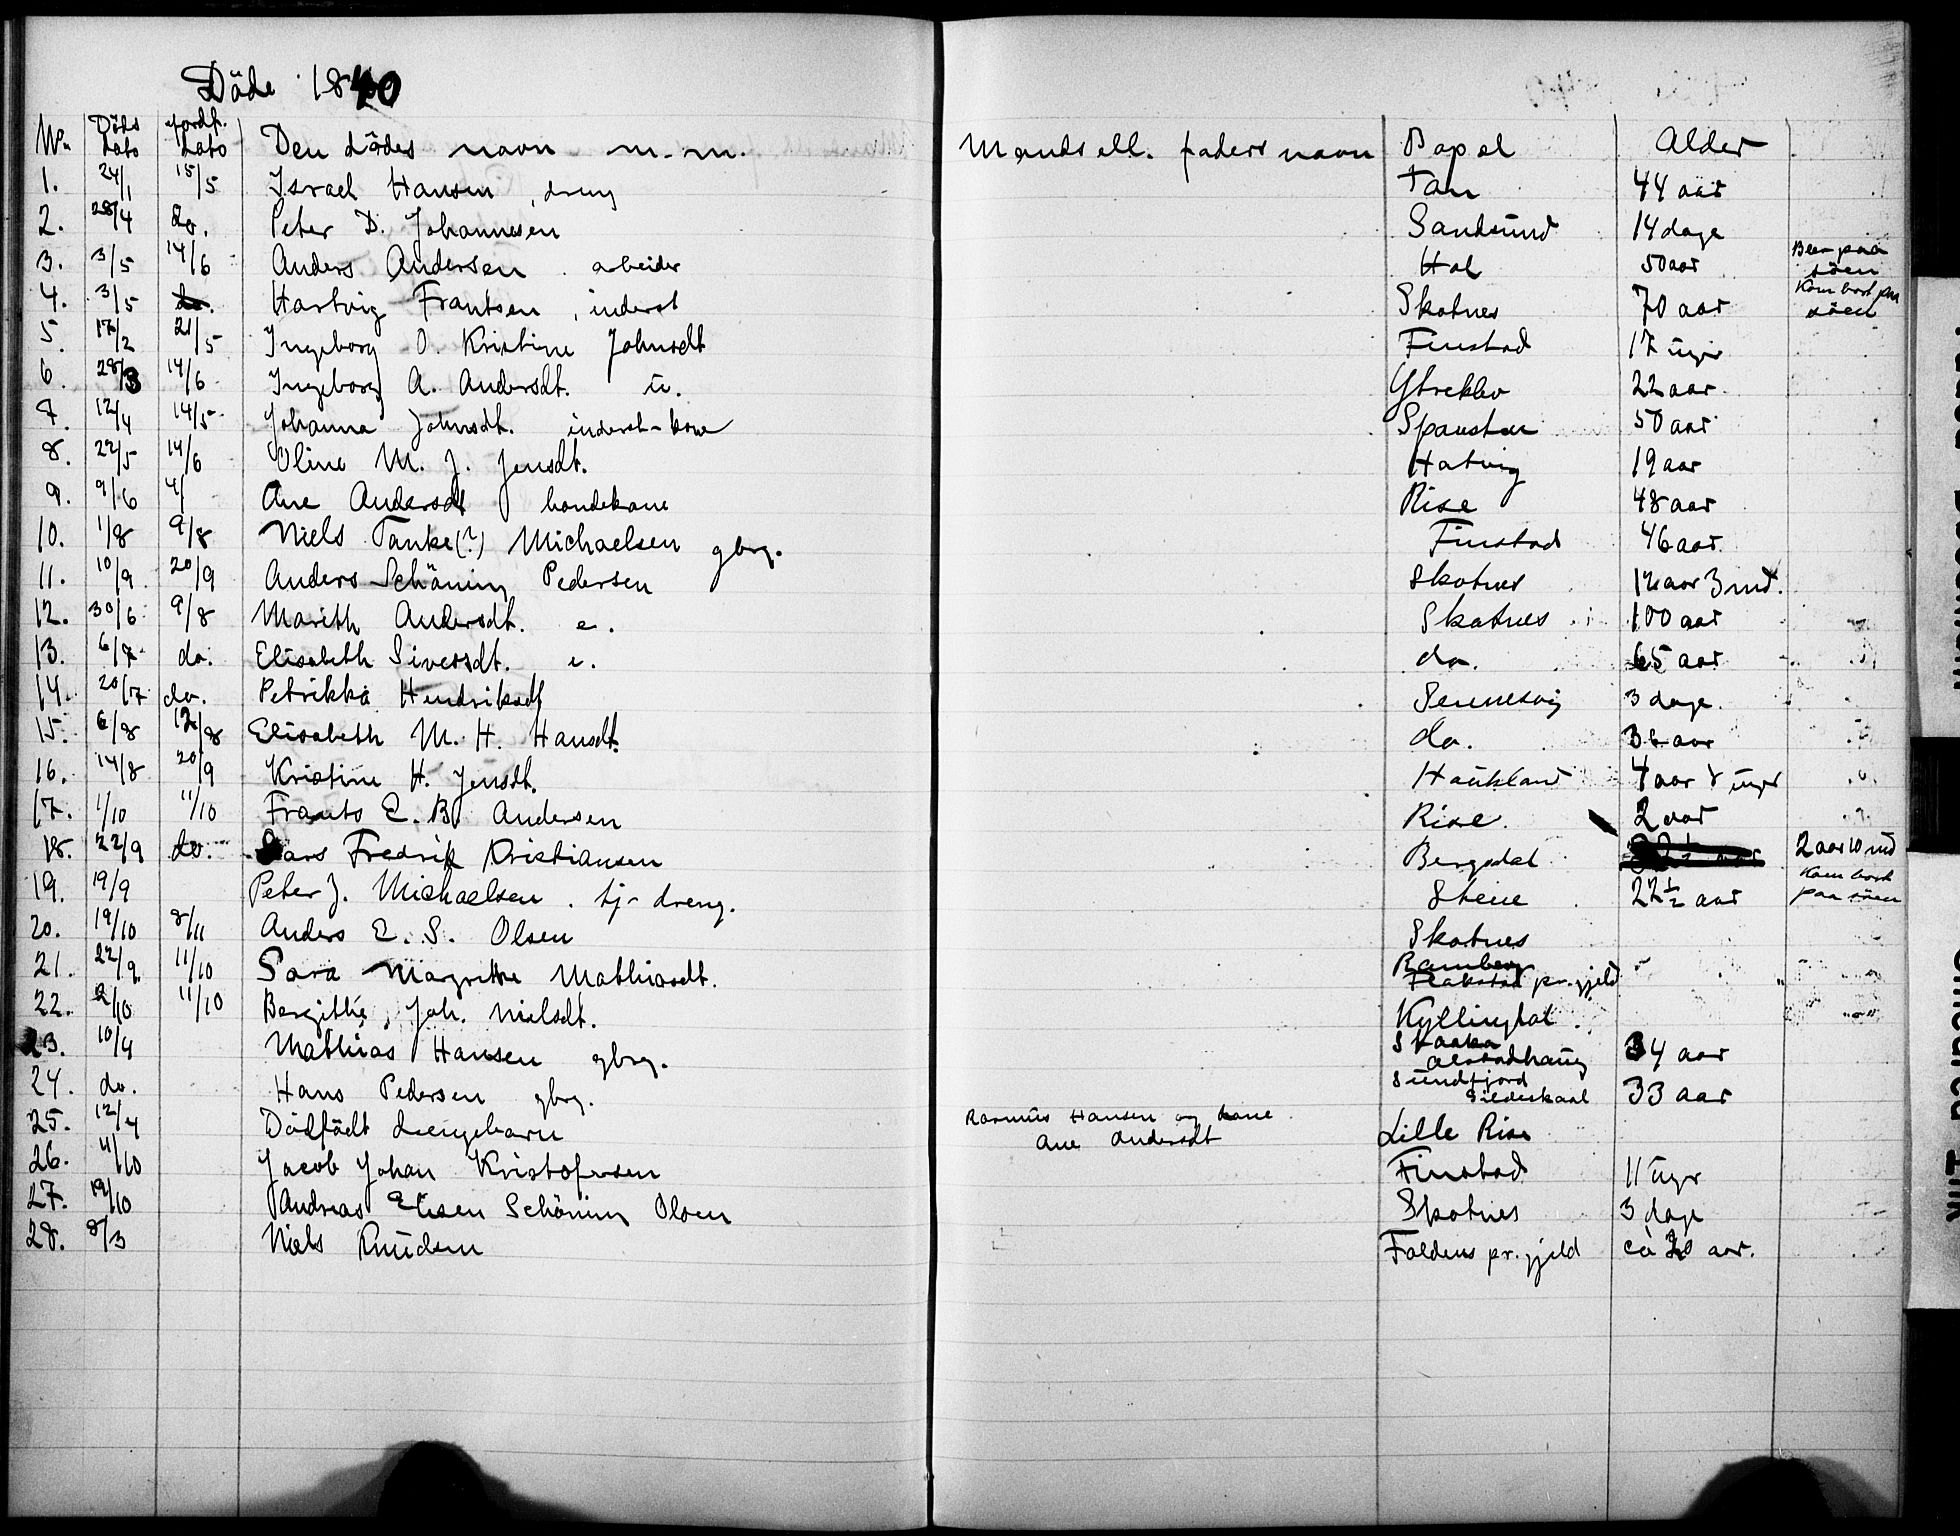 Döde 1840
No. Döds dato jordf. dato Den dödes navn m.m. Mands ell. faders navn Bopæl Alder
1. 24/1 15/5 Israel Hansen, dreng Tan 44 aar
2. 28/4 do. Peter D. Johannesen Sandsund 14 dage
3. 3/5 14/6 Anders Andersen. arbeider Hol 50 aar Blev paa söen
4. 3/5 do. Hartvig Frantsen, inderst Skotnes 70 aar Kom bort paa söen
5. 17/2 21/5 Ingeborg O. Kristine Johnsdt Finstad 17 uger
6. 28/3 14/6 Ingeborg A. Andersdt. u. Ytreklev 22 aar
7. 12/4 14/5 Johanna Johnsdt. inderst-kone 50 aar
8. 22/5 14/6 Oline M. J. Jensdt. Hatvig 19 aar
9. 9/6 4/ Ane Andersdt bondekone Rise 48 aar
10. 1/8 9/8 Niels Tanke(?) Michaelsen gbrg. Finstad 46 aar.
11. 10/9 20/9 Anders Schöning Pedersen Skotnes 12 aar 3 md.
12. 30/6 9/8 Marith Andersdt. e. Skotnes 100 aar
13. 6/7 do. Elisabeth Siversdt. e. do. 65 aar
14. 20/7 do. Petrikka Hendriksdt Sennesvig 3 dage.
15. 6/8 12/8 Elisabeth M. H. Hansdt. do. 36 aar
16. 14/8 20/9 Kristine H. Jensdt. Haukland 4 aar uger
17. 1/10 11/10 Frants E. B. Andersen Rise. 2 aar
18. 22/9 do. Lars Fredrik Kristiansen Bergsdal 2 aar 10 md
19. 19/9 Peter J. Michaelsen. tj-dreng. Stene 22½ aar Kom bort paa söen
20. 19/10 8/11 Anders E. S. Olsen Skotnes
21. 22/9 11/10 Sara Margrethe Mathiasdt. Ramberg Flakstad pr.gjeld
22. 2/10 11/10 Bergithe Joh. Nielsdt. Kyllingdal.
23. 10/4 Mathias Hansen gbrg. Skaaka Alstadhaug 34 aar
24. do. Hans Pedersen gbrg. Sundfjord Gildeskaal 33 aar
25. 12/4 Dödfödt drengebarn Rasmus Hansen og kone Ane Andersdt Lille Rise
26. 4/10 Jacob Johan Kristofersen Finstad 11 uger
27. 19/10 Andreas Elisen Schöning Olsen Skotnes 3 dage
28. 8/3 Niels Knudsen Foldens pr.gjeld ca 20 aar.